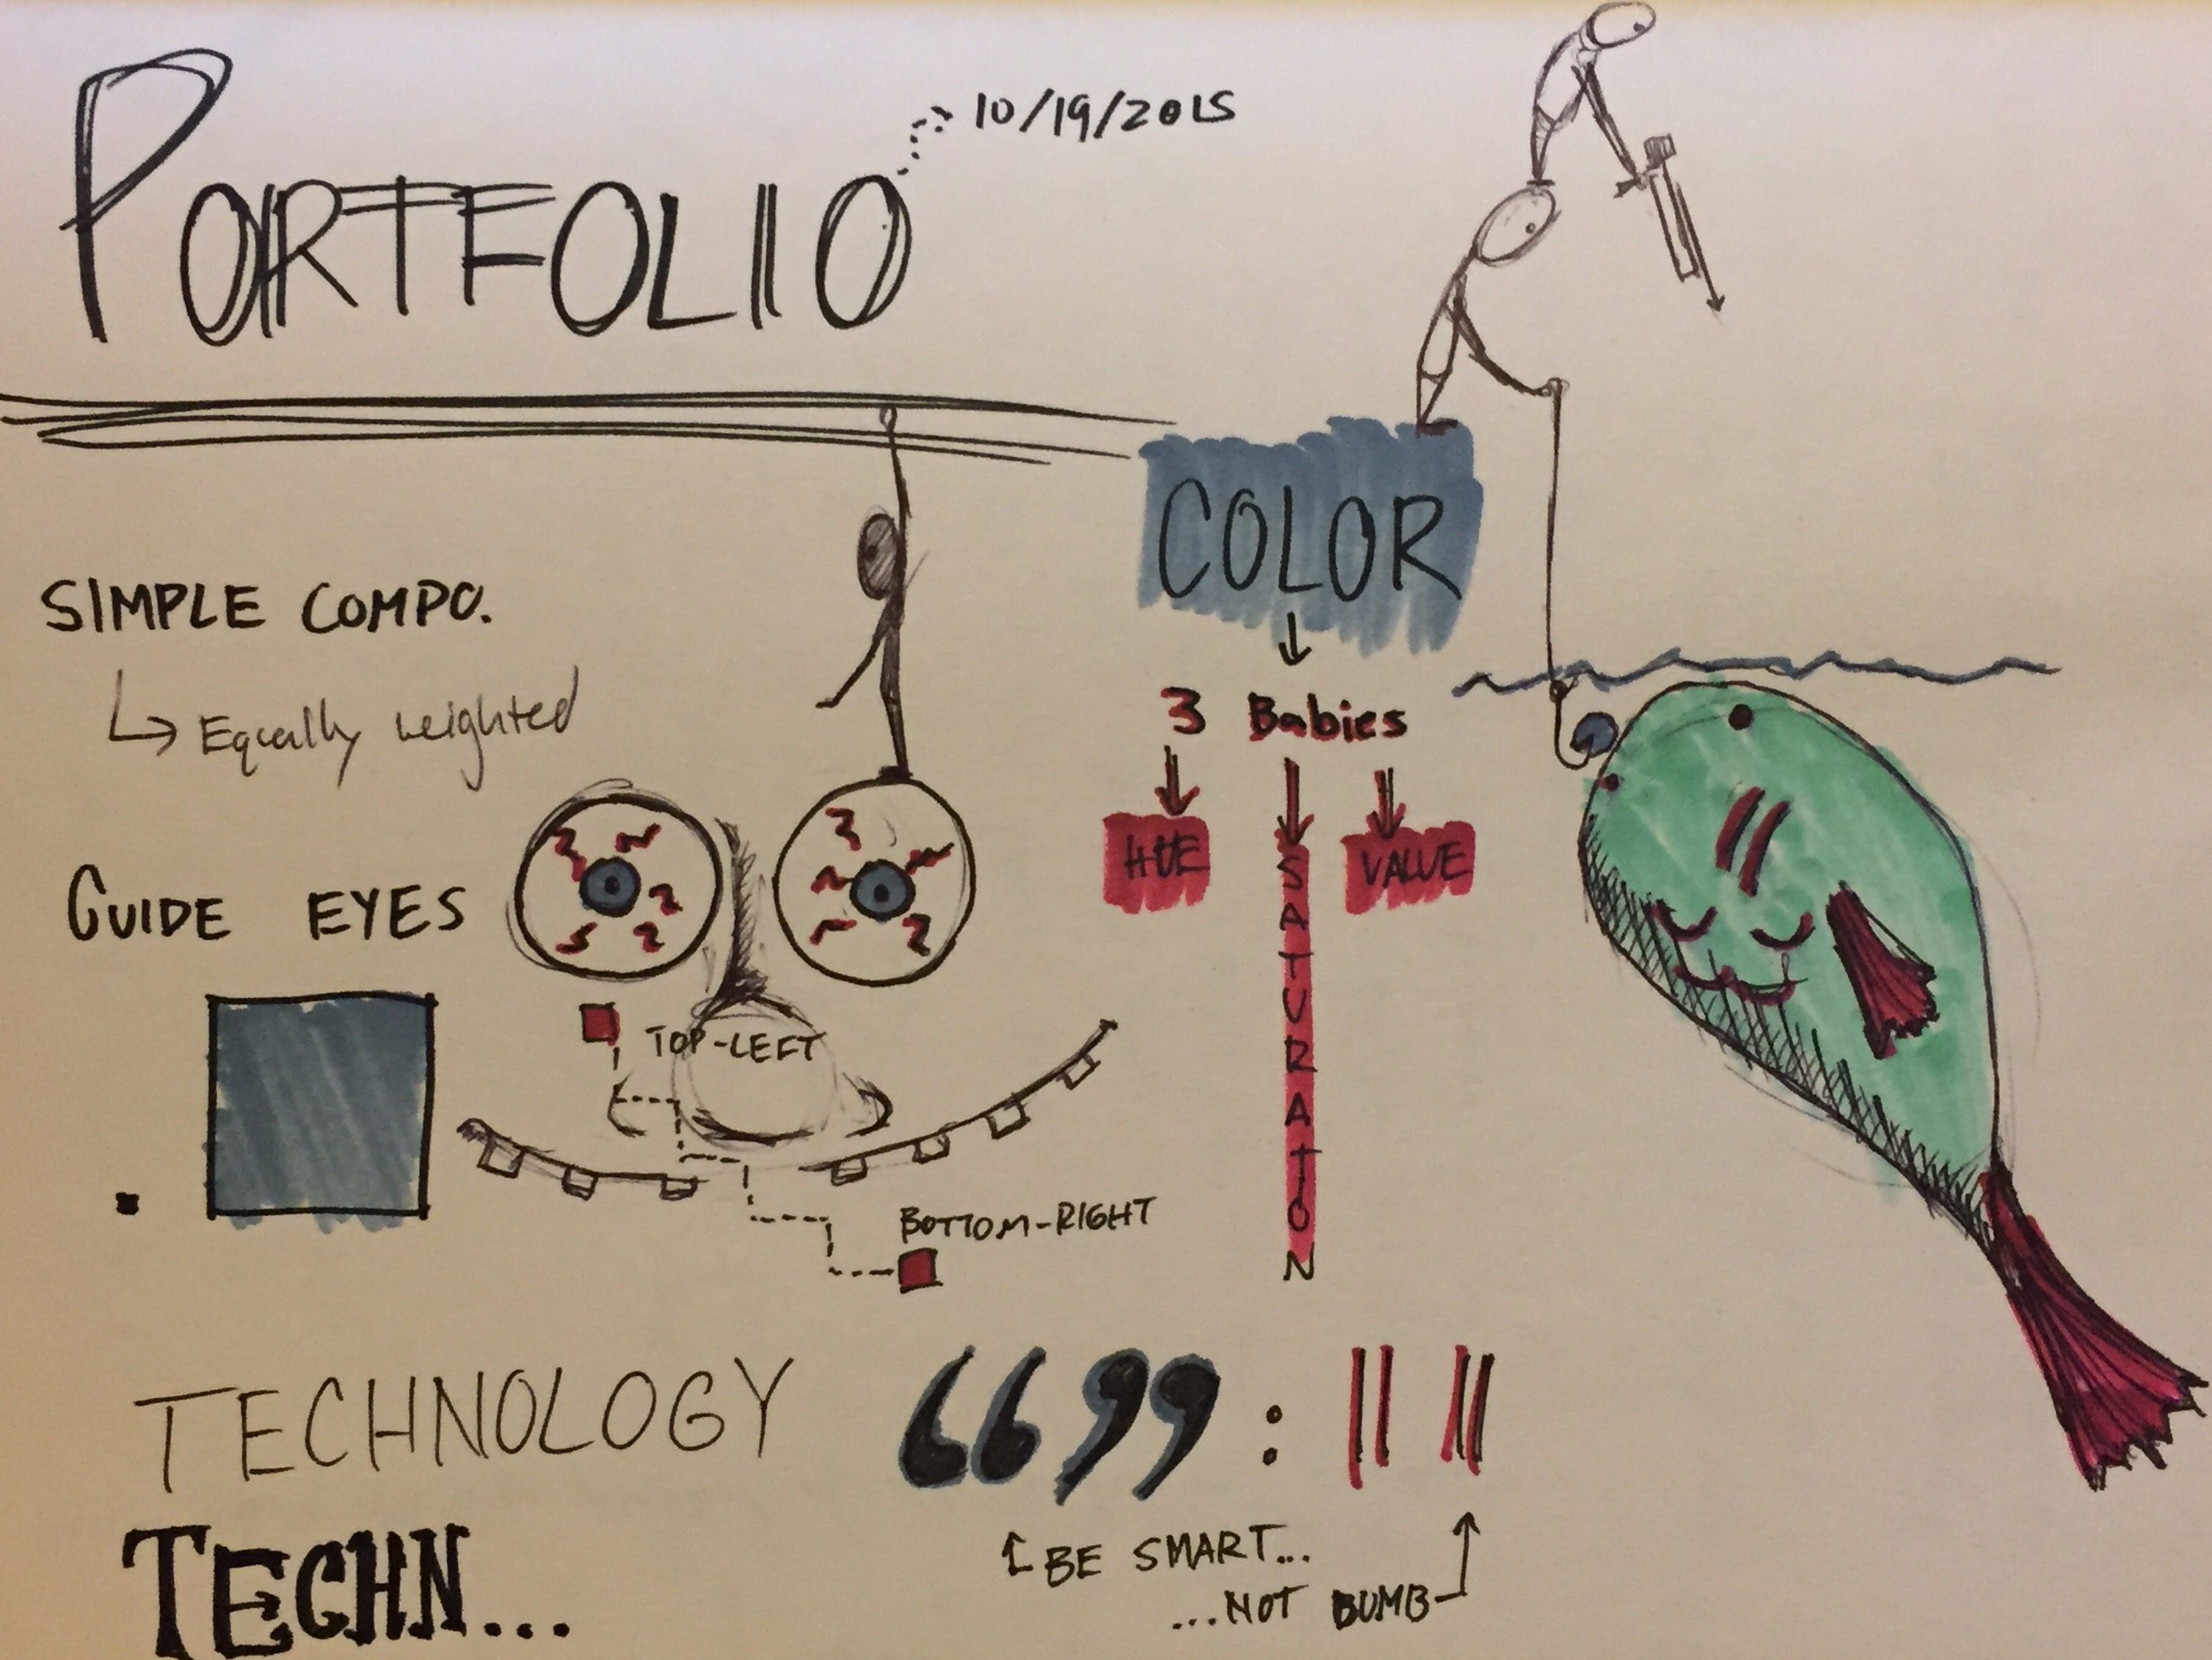 PORTFOLIO
10/19/2015
SIMPLE COMPO.
Equally weighted
GUIDE EYES
TOP-LEFT
BOTTOM-RIGHT
COLOR
3 Babies
HUE
SATURATION
VALUE
TECHNOLOGY
TECHN...
“ ” : " "
BE SMART...
...NOT BUMB